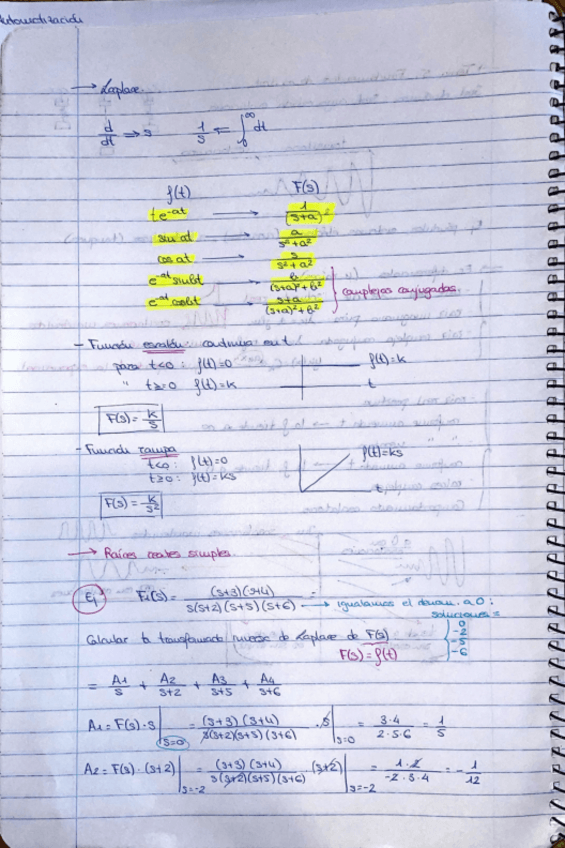 Automatización
→ Laplace.
d/dt ⇒ s    1/s ⇐ ∫₀^∞ dt
f(t)    F(s)
te^-at → 1/(s+a)²
sin at → a/(s²+a²)
cos at → s/(s²+a²)
e^-at sin bt → b/((s+a)²+b²)
e^-at cos bt → (s+a)/((s+a)²+b²) } complejos conjugados.
- Función escalón continua en t
para t<0 : f(t)=0    f(t)=k
" t≥0 f(t)=k    t
F(s)= k/s
- Función rampa    f(t)=ks
t<0 : f(t)=0
t≥0 : f(t)=ks    t
F(s)= k/s²
→ Raíces reales simples
Ej    F₁(s)= (s+3)(s+4) / s(s+2)(s+5)(s+6) → igualamos el denom. a 0 :
soluciones =
0
-2
-5
-6
Calcular la transformada inversa de Laplace de F(s)
F(s)=f(t)
= A1/s + A2/(s+2) + A3/(s+5) + A4/(s+6)
A1 = F(s)·s |s=0 = (s+3)(s+4) / s(s+2)(s+5)(s+6) · s |s=0 = 3·4 / 2·5·6 = 1/5
A2 = F(s)·(s+2) |s=-2 = (s+3)(s+4) / s(s+2)(s+5)(s+6) (s+2) |s=-2 = 1·2 / -2·3·4 = - 1/12